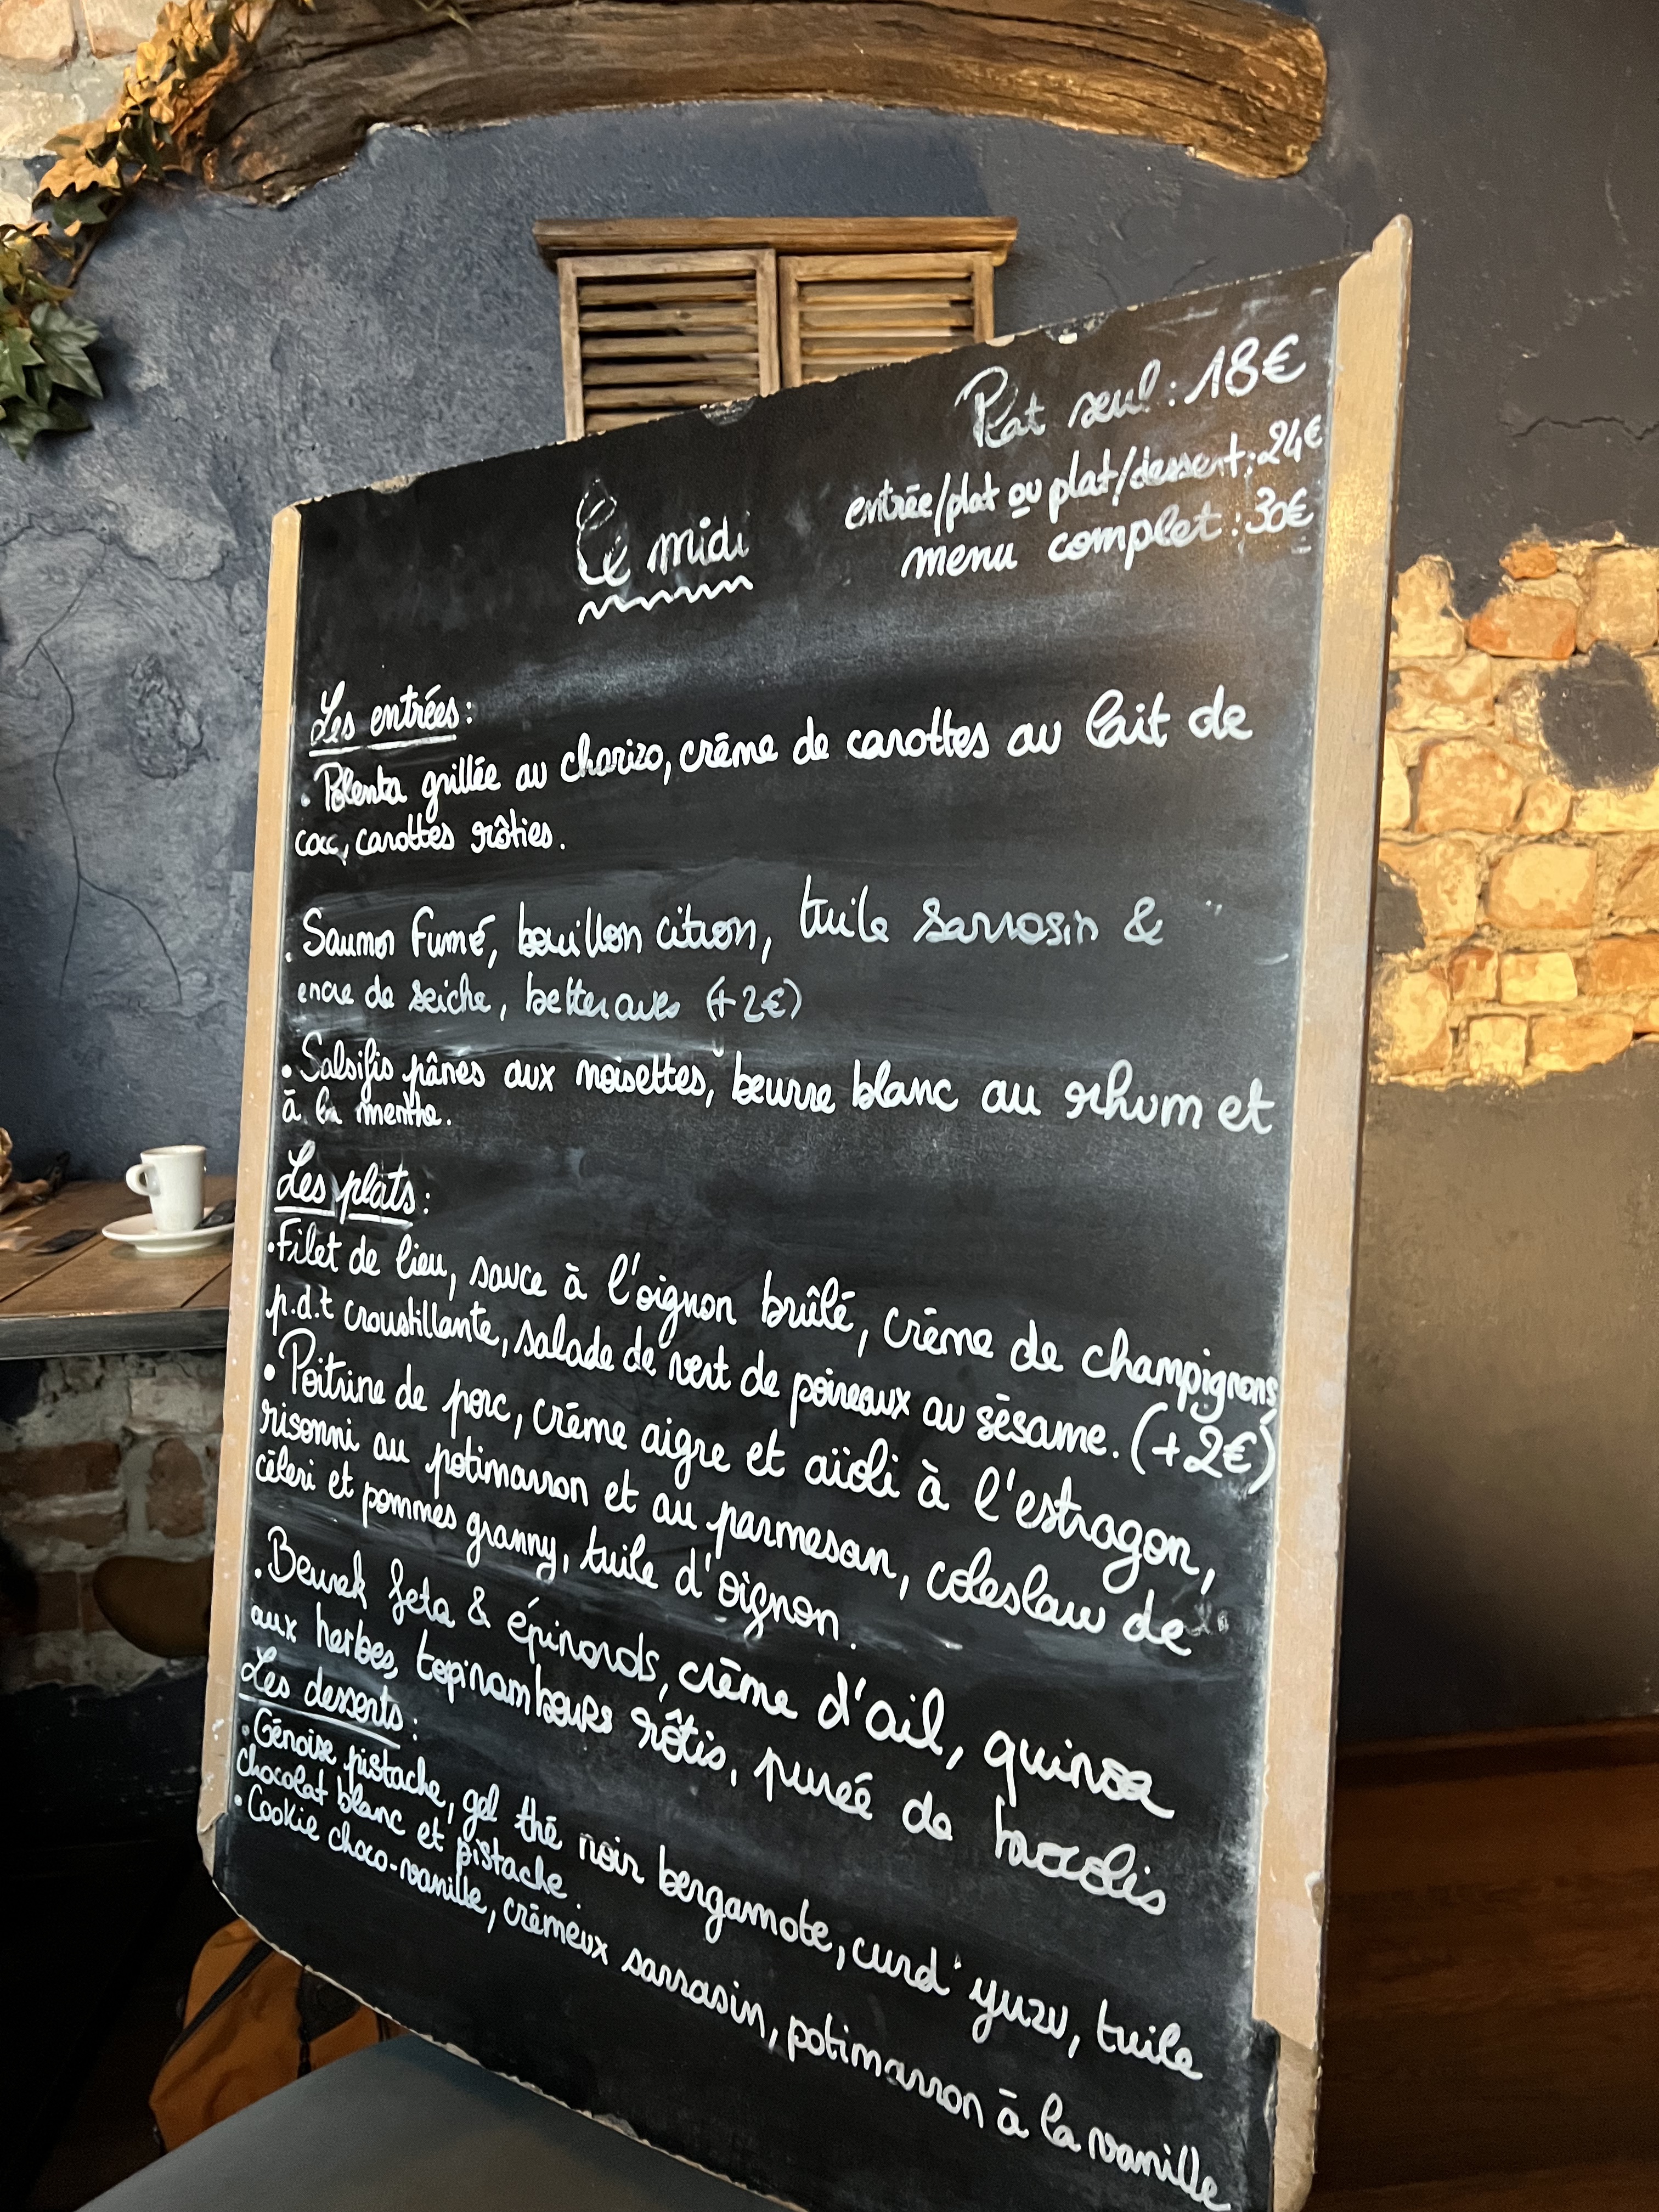 Plat seul : 18€
entrée/plat ou plat/dessert : 24€
menu complet : 30€
Ce midi
Les entrées :
. Polenta grillée au chorizo, crème de carottes au lait de
coco, carottes rôties.
. Saumon Fumé, bouillon citron, tuile Sarrasin &
encre de seiche, betteraves (+2€)
. Salsifis pânés aux noisettes, beurre blanc au rhum et
à la menthe.
Les plats :
. Filet de lieu, sauce à l'oignon brûlé, crème de champignons,
p.d.t croustillante, salade de vert de poireaux au sésame. (+2€)
. Poitrine de porc, crème aigre et aïoli à l'estragon,
risonni au potimarron et au parmesan, coleslaw de
céleri et pommes granny, tuile d'oignon.
. Beurek feta & épinards, crème d'ail, quinoa
aux herbes, topinambours rôtis, purée de brocolis
Les desserts :
. Génoise pistache, gel thé noir bergamote, curd yuzu, tuile
chocolat blanc et pistache.
. Cookie choco-vanille, crémeux sarrasin, potimarron à la vanille